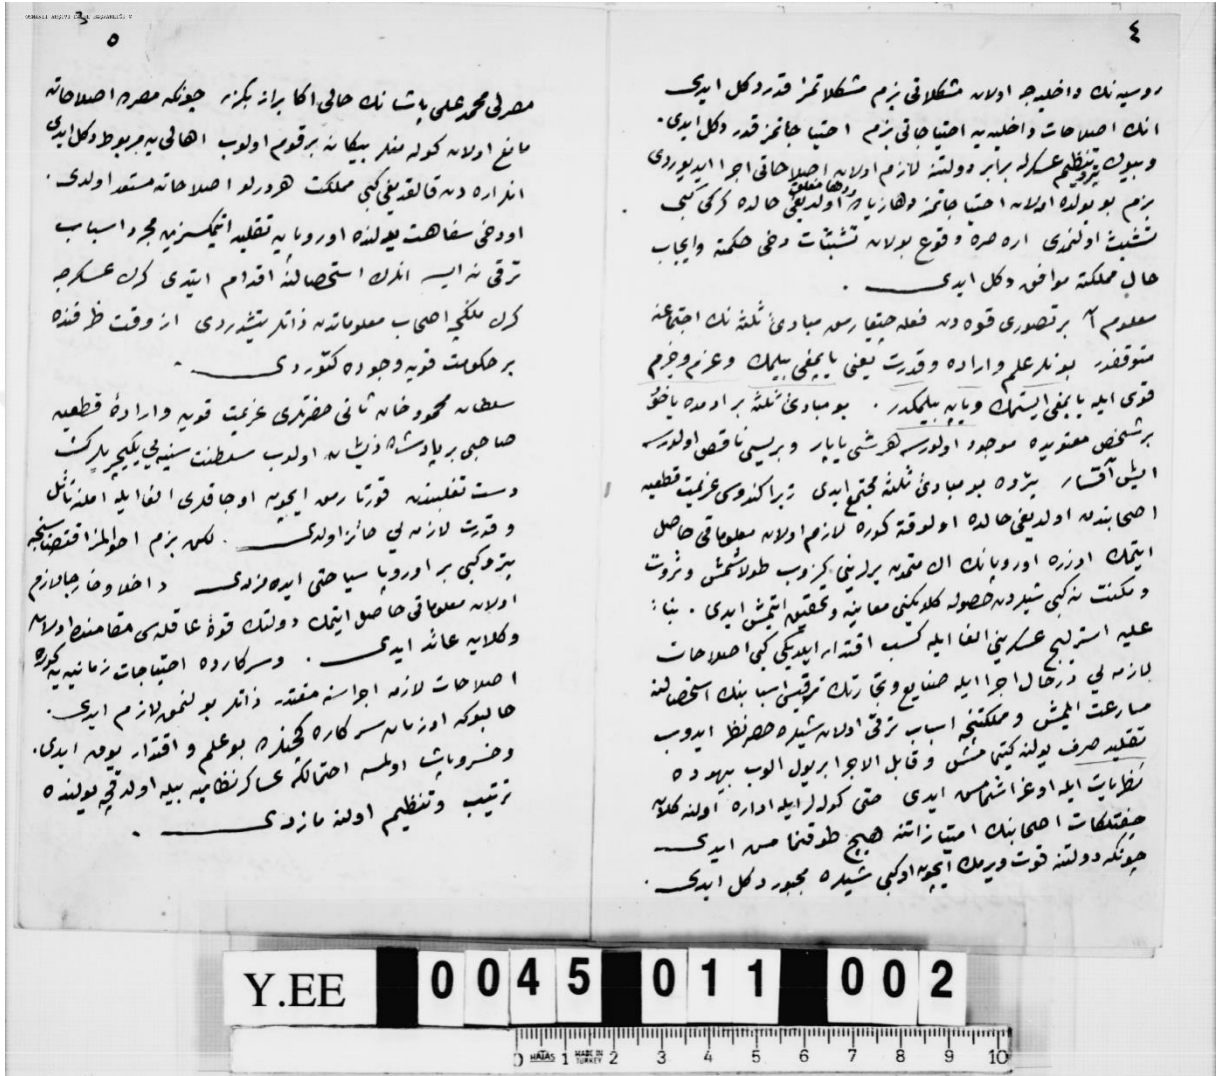 ٤
روسیه‌نك داخلیجه اولان مشكلاتی بزم مشكلاتمز قدر دكل ایدی
انك اصلاحات داخلیه‌یه احتیاجاتی بزم احتیاجاتمز قدر دكل ایدی.
و بیوك پترو تنظیم عسكرله برابر دولتنه لازم اولان اصلاحاتی اجرا ایدیوردی
بزم بو یولده اولان احتیاجاتمز دها زیاده و دها مغلق اولدیغی حالده كركی كبی
تشبث اولنمدی اره صره وقوع بولان تشبثات دخی حكمته و ایجاب
حال مملكته موافق دكل ایدی .
معلوم آ بر تصوری قوه‌دن فعله چیقارمق مبادئ ثلثه‌نك اجتماعنه
متوقفدر بونلر علم و اراده و قدرت یعنی یاپمغی بیلمك و عزم و جزم
قوی ایله یاپمغی ایستمك و یاپه بیلمكدر . بو مبادئ ثلثه بر ادمده یاخود
بر شخص معنویده موجود اولورسه هر شی یاپار و بریسی ناقص اولورسه
ایش آقسار پتروده بو مبادئ ثلثه مجتمع ایدی زیرا كندوسی عزیمت قطعیه
اصحابندن اولدیغی حالده اولوقته كوره لازم اولان معلوماتی حاصل
ایتمك اوزره اوروپانك اك متمدن یرلرینی كزوب طولاشمش و ثروت
و مكنت نه كبی شیلردن حصوله كلدیكنی معاینه و تحقیق ایتمش ایدی . بناءً
علیه استرلیچ عسكرینی الغا ایله كسب اقتدار ایلدیكی كبی اصلاحات
لازمه‌یی درحال اجرا ایله صنایع و تجارتك ترقیسی اسبابنك استحصالنه
مسارعت ایلمش و مملكتنجه اسباب ترقی اولان شیلره حصر نظر ایدوب
تقلید صرف یولنه كیتمامش و قابل الاجرا بر یول الوب بیهوده
نظریات ایله اوغراشمامش ایدی حتی كوله‌لر ایله اداره اولنه كلان
چفتلكات اصحابنك امتیازاتنه هیچ طوقنمامش ایدی
چونكه دولتنه قوت ویرمك ایچون او كبی شیلره مجبور دكل ایدی .
٥
مصرلی محمد علی پاشانك حالی اكا براز بكزر چونكه مصرده اصلاحاته
مانع اولان كوله‌منلر بیكانه بر قوم اولوب اهالی‌یه مربوط دكل ایدی
انلر اره‌دن قالقدیغی كبی مملكت هر درلو اصلاحاته مستعد اولدی .
او دخی سفاهت یولنده اوروپایه تقلید ایتمكسزین مجرد اسباب
ترقی نه ایسه انلرك استحصالنه اقدام ایتدی كرك عسكرجه
كرك ملكجه اصحاب معلوماتدن ذاتلر یتشدردی از وقت ظرفنده
بر حكومت قویه وجوده كتوردی .
سلطان محمود خان ثانی حضرتلری عزیمت قویه و ارادۀ قطعیه
صاحبی بر پادشاه ذیشان اولوب سلطنت سنیه‌یی یكیچریلرك
دست تغلبندن قورتارمق ایچون اوجاقلری الغا ایله املنه نائل
و قدرت لازمه‌یی حائز اولدی . لكن بزم احوالمز اقتضاسنجه
پترو كبی بر اوروپا سیاحتی ایده‌مزدی داخلا و خارجا لازم
اولان معلوماتی حاصل ایتمك دولتك قوۀ عاقله‌سی مقامنده اولان
وكلایه عائد ایدی . و سر كارده احتیاجات زمانیه‌یه كوره
اصلاحات لازمه اجراسنه مقتدر ذاتلر بولنمق لازم ایدی.
حالبوكه او زمان سر كاره كچنلرده بو علم و اقتدار یوق ایدی.
و خسرو پاشا اولمسه احتمالكه عساكر نظامیه بیله اولدقجه یولنده
ترتیب و تنظیم اولنه‌مازدی .
Y.EE 0045 011 002
0 HATAS 1 MADE IN TURKEY 2 3 4 5 6 7 8 9 10